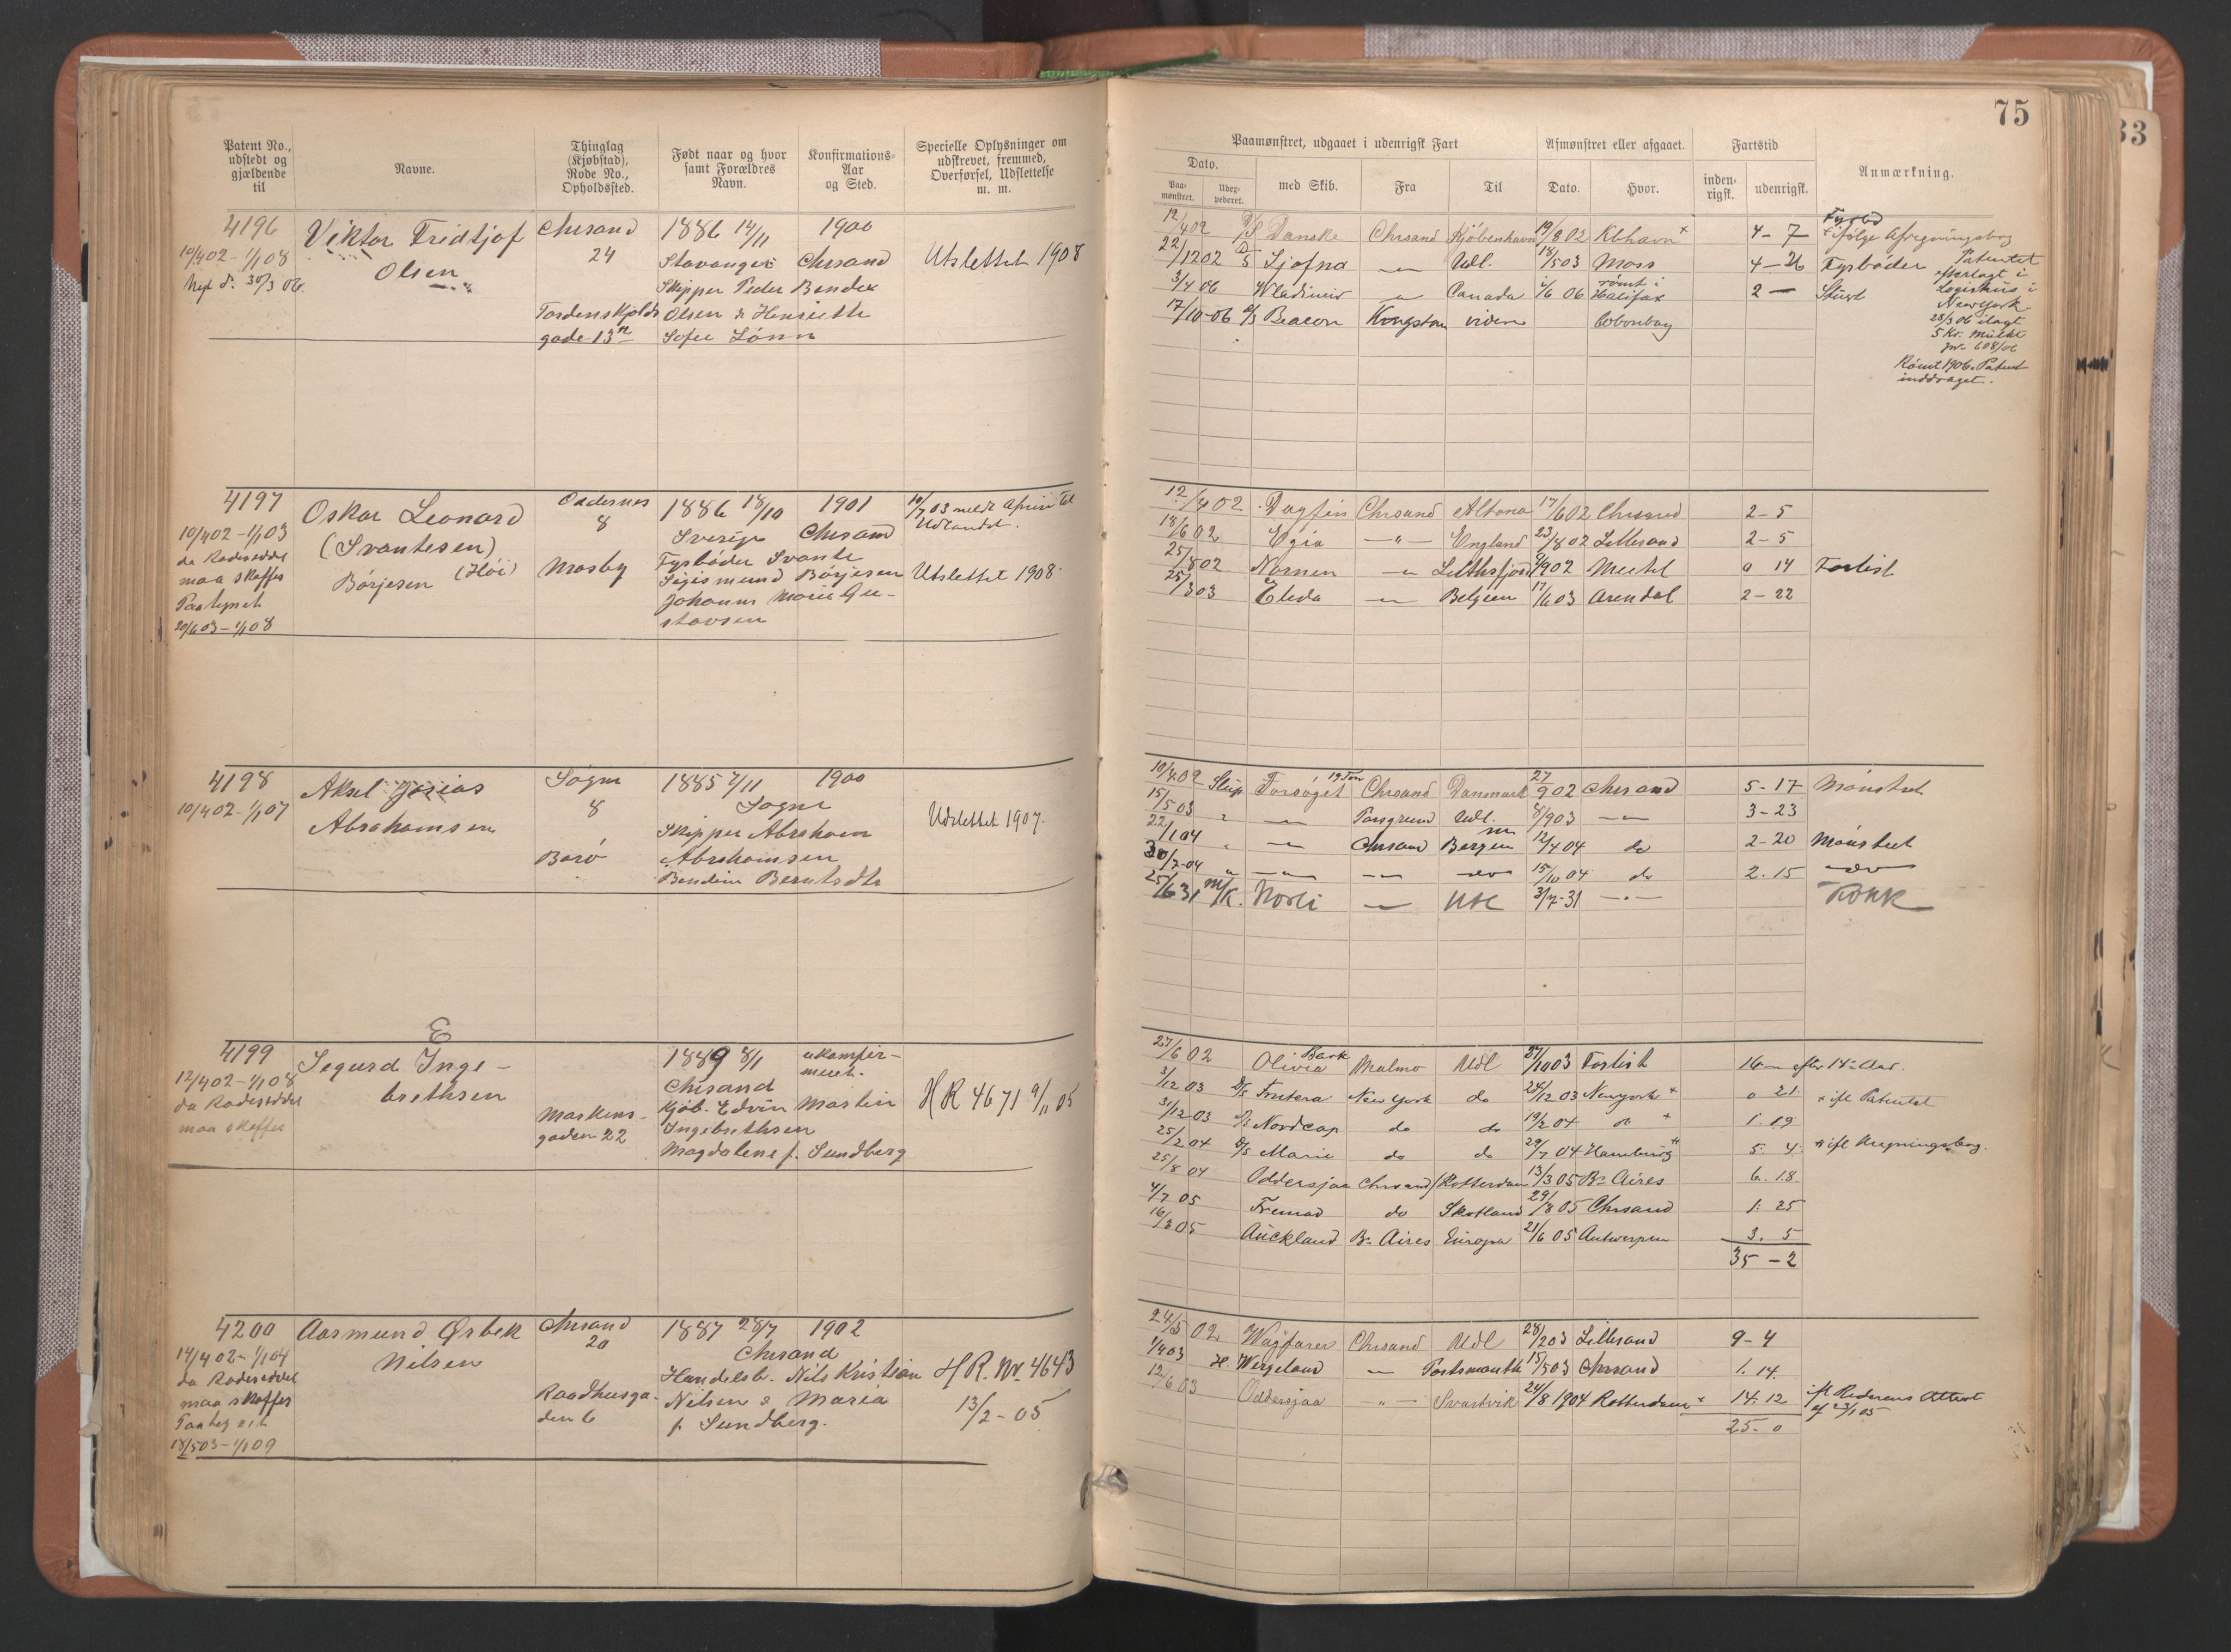 75
33
Patent No., udstedt og gjældende til
Navne.
Thinglag (Kjøbstad), Rode No., Opholdssted.
Født naar og hvor samt Forældres Navn.
Konfirmations-Aar og Sted.
Specielle Oplysninger om udskrevet, fremmed, Overførsel, Udslettelse m. m.
Paamønstret, udgaaet i udenrigsk Fart
Dato.
Paa-mønstret.
Udex-pederet.
med Skib.
Fra
Til
Afmønstret eller afgaaet.
Dato.
Hvor.
Fartstid
inden-rigsk.
udenrigsk.
Anmærkning.
4196
10/4 02 - 1/1 08
Nyt P. 30/3 06.
Viktor Fridtjof
Olsen
Chrsand
24
Tordenskjolds
gade 13
1886 14/11 1900
Stavanger Chrsand
Skipper Peder Bendex
Olsen & Henriette
Sofie Lönn
Utslettet 1908
12/4 02 D/S Danske Chrsand Kjöbenhavn 19/8 02 Kbhavn + 4 - 7 + ifölge Afregningsbog
22/12 02 D/S Sjofna — " — Udl. 18/5 03 Moss 4 - 26 Fyrböder
3/4 06 Wladimir — " — Canada 4/6 06 römt i Halifax 2 —
17/10-06 Beacon Kingston viden
Patentet
efterlagt i
Logishus i
New York
28/3 06 ilagt
5 Kr. mulkt
jnr 608/06
Römt 1906. Patent
inddraget.
4197
10/4 02 - 1/1 03
da Rodeseddel
maa skaffes
Paategnet
20/6 03 - 1/1 08
Oskar Leonard
(Svantesen)
Börjesen (Höi)
Oddernes
8
Mosby
1886 18/10 1901
Sverige Chrsand
Fyrböder Svante
Sigismund Börjesen
Johanne Marie Gu-
stavsen
10/7 03 meldt Afreise til
Udlandet.
Utslettet 1908
12/4 02 Dagfin Chrsand Altona 17/6 02 Chrsand 2 - 5
18/6 02 Egia — " — England 23/8 02 Lillesand 2 - 5
25/8 02 Nornen — " — 9/9 02 0 14 Forlist
25/3 03 Eleda — " — Belgien 17/6 03 Arendal 2 - 22
4198
10/4 02 - 1/1 07
Aksel Josias
Abrahamsen
Sogne
8
Borö
1885 7/11 1900
Sogne
Skipper Abraham
Abrahamsen
Bendine Berntsdtr
Udslettet 1907.
10/4 02 Slup Forsöget 19 Ton Chrsand Danmark 27/9 02 Chrsand 5 - 17 Mönstret
15/5 03 " — " — Porsgrund Udl. 8/9 03 — " — 3 - 23
22/1 04 " — " — Chrsand Bergen 12/4 04 do 2 - 20 Mönstret
30/7-04 " — " — — " — do 15/10 04 do 2. 15 do
25/6 31 M/K. Norli — " — Utl 3/7-31 — " — Kokk
4199
12/4 02 - 1/1 08
da Rodeseddel
maa skaffes
E
Segurd Inge-
brethsen
Markens-
gaden 22
1889 8/1 ukonfir-
meret.
Chrsand
Kjöb. Edvin Martin
Ingebrethsen
Magdalene f. Sundberg
H R 4671 9/11 05
27/6 02 Bark Olivia Malmo Udl 27/10 03 Forlist 16 — efter 14de Aar.
3/12 03 D/s Frutera New York do 24/12 03 Newyork + 0 21 + ifl Patentet
3/12 03 D/s Nordcap do do 19/2 04 do + 1. 19
25/2 04 D/s Marie do do 29/7 04 Hamburg 5. 4.
25/8 04 Oddersjaa Chrsand / Rotterdam 13/3 05 Bs Aires 6. 18.
4/7 05 Fremad do Skotland 29/8 05 Chrsand 1. 25
16/3 05 Auckland Bs Aires Europa 21/6 05 Antwerpen 3. 5
35 - 2
4200
14/4 02 - 1/1 04
da Rodeseddel
maa skaffes
Paategnet
18/5 03 - 1/1 09
Aasmund Ørbek
Nilsen
Chrsand
20
Raadhusga-
den 6
1887 28/7 1902
Chrsand
Handelsb. Nils Kristian
Nilsen & Maria
f. Sundberg.
H R. Nr. 4643
13/2 - 05
24/5 02 Wayfarer Chrsand Udl 28/2 03 Lillesand 9 - 4
1/4 03 H. Wergeland — " — Portsmouth 15/5 03 Chrsand 1. 14.
12/6 03 Oddersjaa — " — Svartvik 24/8 1904 Rotterdam + 14. 12 + ifl Rederens Attest
af 23/1 05
25 - 0